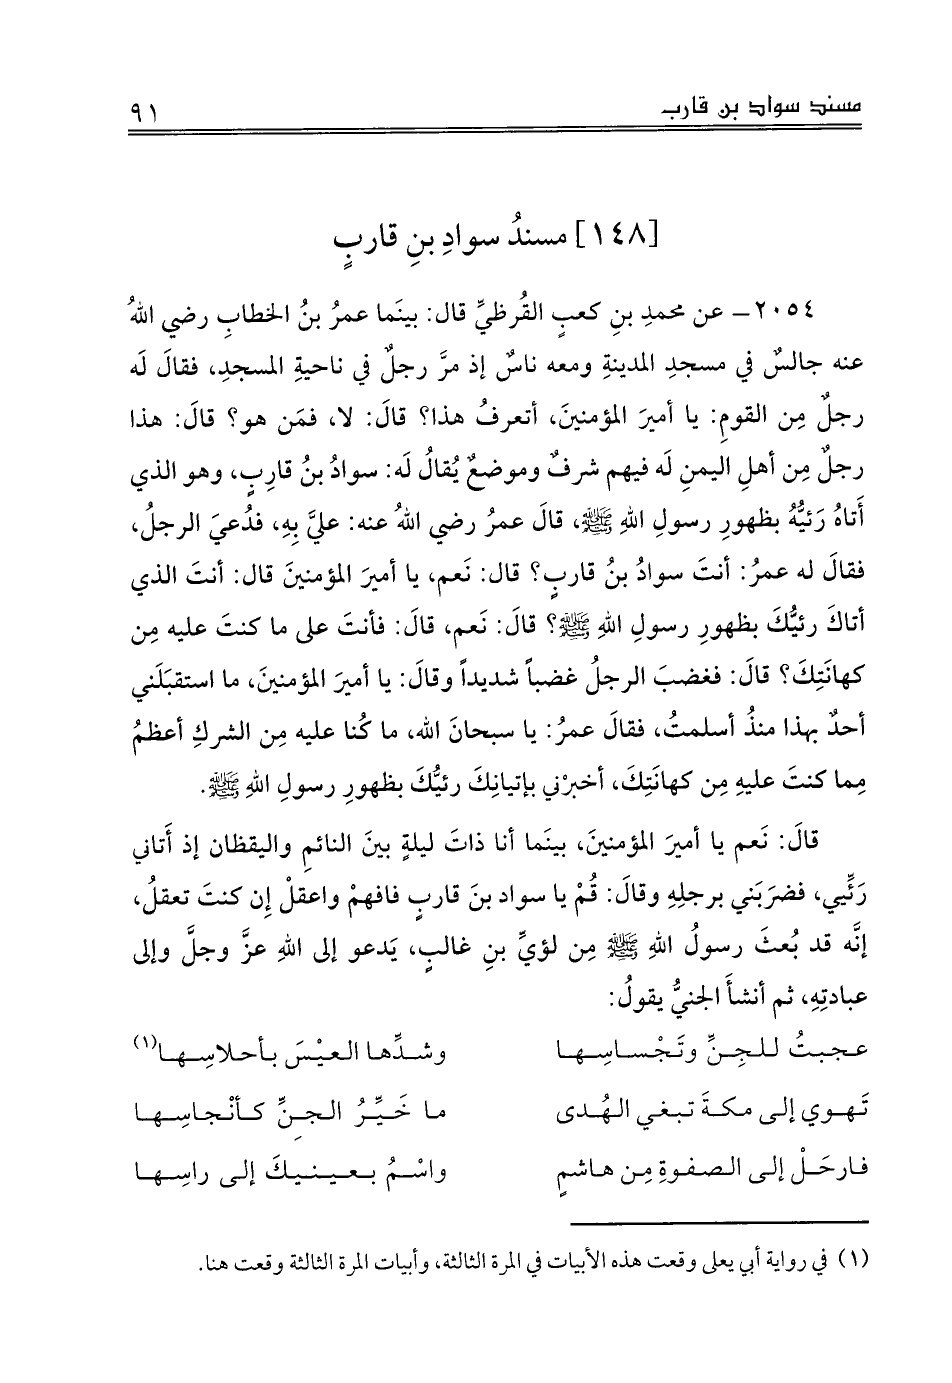 مسند سواد بن قارب ٩١
[١٤٨] مسندُ سوادِ بنِ قاربٍ
٢٠٥٤ـ عن محمدِ بنِ كعبٍ القُرظيِّ قال: بينَما عمرُ بنُ الخطابِ رضي اللهُ
عنه جالسٌ في مسجدِ المدينةِ ومعه ناسٌ إذ مرَّ رجلٌ في ناحيةِ المسجدِ، فقالَ له
رجلٌ مِن القومِ: يا أميرَ المؤمنينَ، أتعرفُ هذا؟ قالَ: لا، فمَن هو؟ قالَ: هذا
رجلٌ مِن أهلِ اليمنِ لَه فيهم شرفٌ وموضعٌ يُقالُ لَه: سوادُ بنُ قارِبٍ، وهو الذي
أَتاهُ رَئيُّهُ بظهورِ رسولِ اللهِ ﷺ، قالَ عمرُ رضي اللهُ عنه: عليَّ بِهِ، فدُعيَ الرجلُ،
فقالَ له عمرُ: أنتَ سوادُ بنُ قاربٍ؟ قال: نَعم، يا أميرَ المؤمنينَ قال: أنتَ الذي
أتاكَ رئيُّكَ بظهورِ رسولِ اللهِ ﷺ؟ قالَ: نَعم، قالَ: فأنتَ على ما كنتَ عليه مِن
كهانَتِكَ؟ قالَ: فغضبَ الرجلُ غضباً شديداً وقالَ: يا أميرَ المؤمنينَ، ما استقبَلَني
أحدٌ بهذا منذُ أسلمتُ، فقالَ عمرُ: يا سبحانَ الله، ما كُنا عليه مِن الشركِ أعظمُ
مِما كنتَ عليهِ مِن كهانَتِكَ، أخبرْني بإتيانِكَ رئيُّكَ بظهورِ رسولِ اللهِ ﷺ.
قالَ: نَعم يا أميرَ المؤمنينَ، بينَما أنا ذاتَ ليلةٍ بينَ النائمِ واليقظان إذ أَتاني
رَئِّيي، فضرَبَني برجلِهِ وقالَ: قُمْ يا سواد بنَ قاربٍ فافهمْ واعقلْ إن كنتَ تعقلُ،
إنَّه قد بُعثَ رسولُ اللهِ ﷺ مِن لؤيِّ بنِ غالبٍ، يَدعو إلى اللهِ عزَّ وجلَّ وإلى
عبادتِهِ، ثم أنشأَ الجنيُّ يقولُ:
عجبتُ للجنِّ وتَجْساسِها وشدِّها العيْسَ بأحلاسِها(١)
تَهوي إلى مكةَ تبغي الهُدى ما خَيِّرُ الجنِّ كأنْجاسِها
فارحَلْ إلى الصفوةِ مِن هاشمٍ واسْمُ بعينيكَ إلى راسِها
(١) في رواية أبي يعلى وقعت هذه الأبيات في المرة الثالثة، وأبيات المرة الثالثة وقعت هنا.